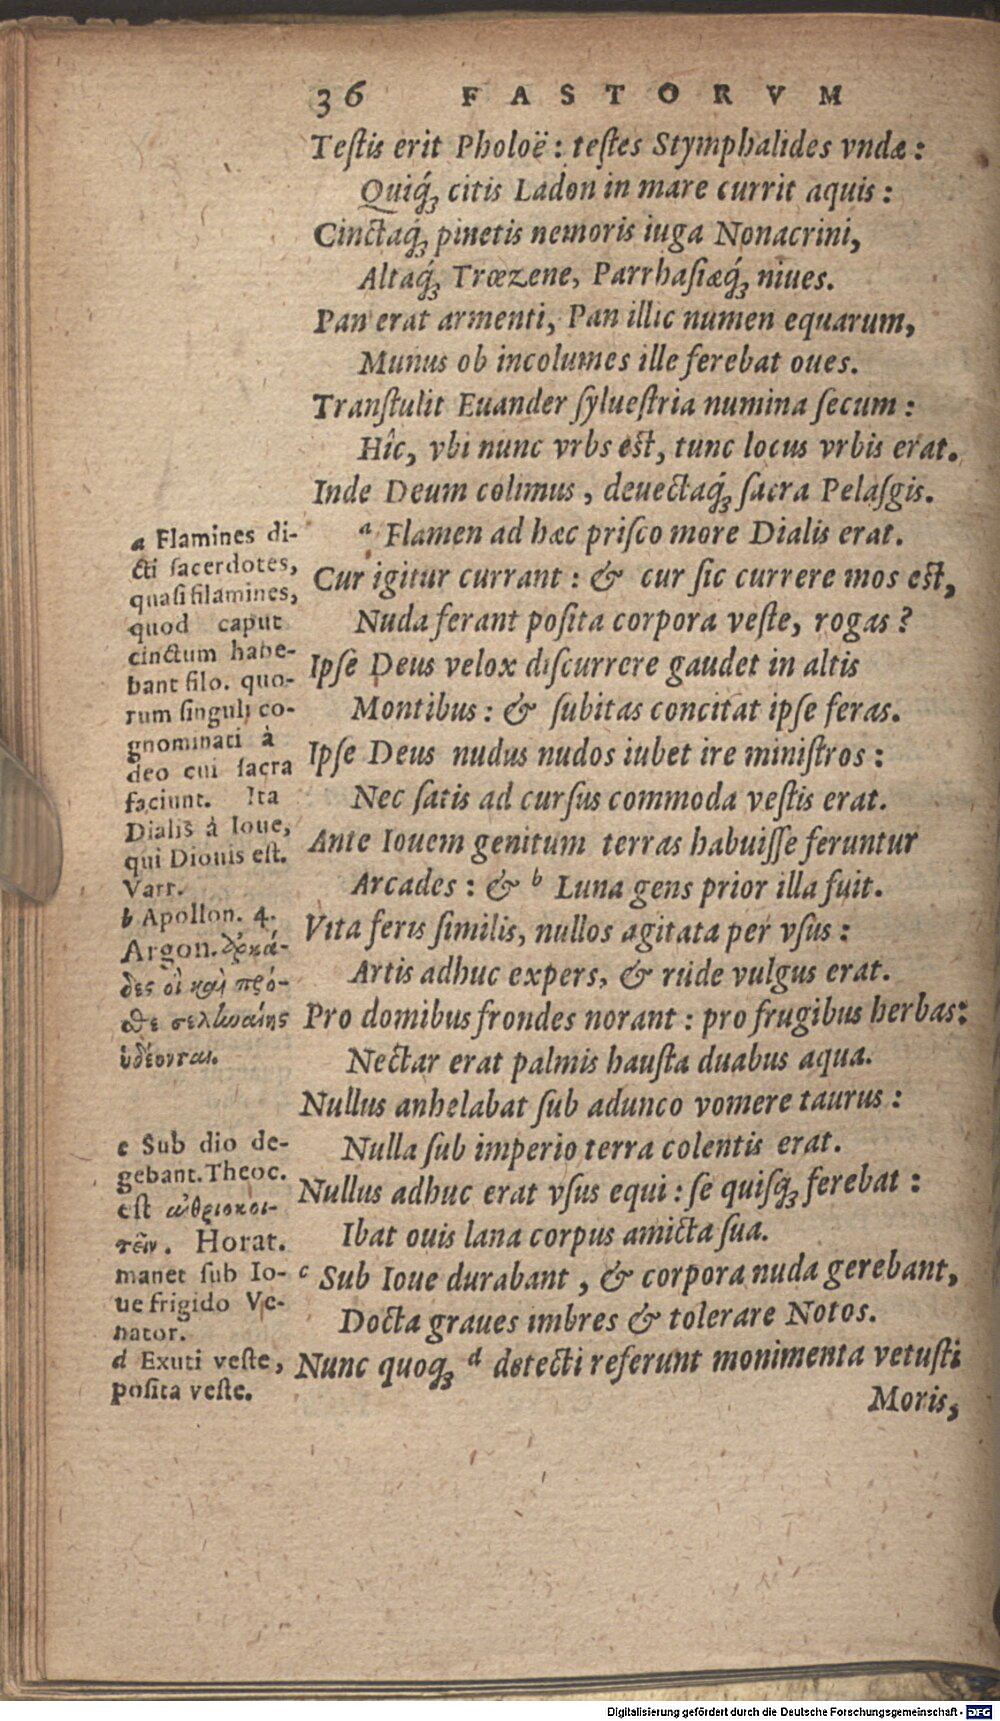 36 FASTORVM
Teſtis erit Pholoë : teſtes Stymphalides vndæ :
Quiq́ꝫ citis Ladon in mare currit aquis :
Cinctaq́ꝫ pinetis nemoris iuga Nonacrini,
Altaq́ꝫ Trœzene, Parrhaſiæq́ꝫ niues.
Pan erat armenti, Pan illic numen equarum,
Munus ob incolumes ille ferebat oues.
Tranſtulit Euander ſylueſtria numina ſecum :
Hîc, vbi nunc vrbs eſt, tunc locus vrbis erat.
Inde Deum colimus, deuectaq́ꝫ ſacra Pelaſgis.
a Flamen ad hæc priſco more Dialis erat.
Cur igitur currant : & cur ſic currere mos eſt,
Nuda ferant poſita corpora veſte, rogas ?
Ipſe Deus velox diſcurrere gaudet in altis
Montibus : & ſubitas concitat ipſe feras.
Ipſe Deus nudus nudos iubet ire miniſtros :
Nec ſatis ad curſus commoda veſtis erat.
Ante Iouem genitum terras habuiſſe feruntur
Arcades : & b Luna gens prior illa fuit.
Vita feris ſimilis, nullos agitata per vſus :
Artis adhuc expers, & rude vulgus erat.
Pro domibus frondes norant : pro frugibus herbas:
Nectar erat palmis hauſta duabus aqua.
Nullus anhelabat ſub adunco vomere taurus :
Nulla ſub imperio terra colentis erat.
Nullus adhuc erat vſus equi : ſe quiſqꝫ ferebat :
Ibat ouis lana corpus amicta ſua.
c Sub Ioue durabant, & corpora nuda gerebant,
Docta graues imbres & tolerare Notos.
Nunc quoqꝫ d detecti referunt monimenta vetuſti
Moris,
a Flamines di-
cti ſacerdotes,
quaſi filamines,
quod caput
cinctum habe-
bant filo. quo-
rum ſinguli co-
gnominati à
deo cui ſacra
faciunt. Ita
Dialis à Ioue,
qui Diouis eſt.
Varr.
b Apollon. 4.
Argon. ἀρκά-
δες οἳ καὶ πρό-
σθε σεληναίης
ὑδέονται.
c Sub dio de-
gebant. Theoc.
eſt αἰθριοκοι-
τεῖν. Horat.
manet ſub Io-
ue frigido Ve-
nator.
d Exuti veſte,
poſita veſte.
Digitalisierung gefördert durch die Deutsche Forschungsgemeinschaft - DFG